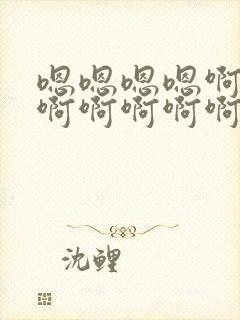 嗯嗯嗯嗯啊
啊啊啊啊啊
沈鲤